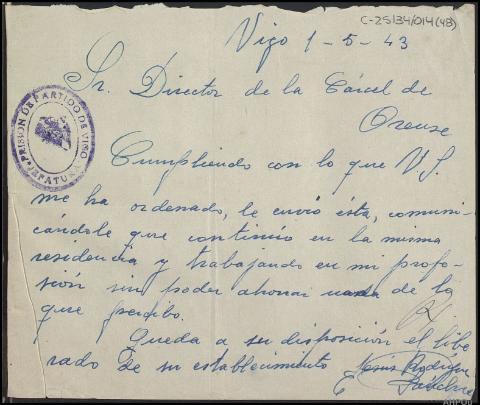 C-25134/014(48)
Vigo 1-5-43
Sr. Director de la Cárcel de
Orense
PRISION DE PARTIDO DE VIGO
JEFATURA
Cumpliendo con lo que V.S.
me ha ordenado, le envio ésta, comuni-
cándole que continúo en la misma
residencia y trabajando en mi profe-
sión sin poder ahorrar nada de lo
que percibo.
Queda a su disposición el libe
rado de su establecimiento Jesús Rodríguez
AHPOU